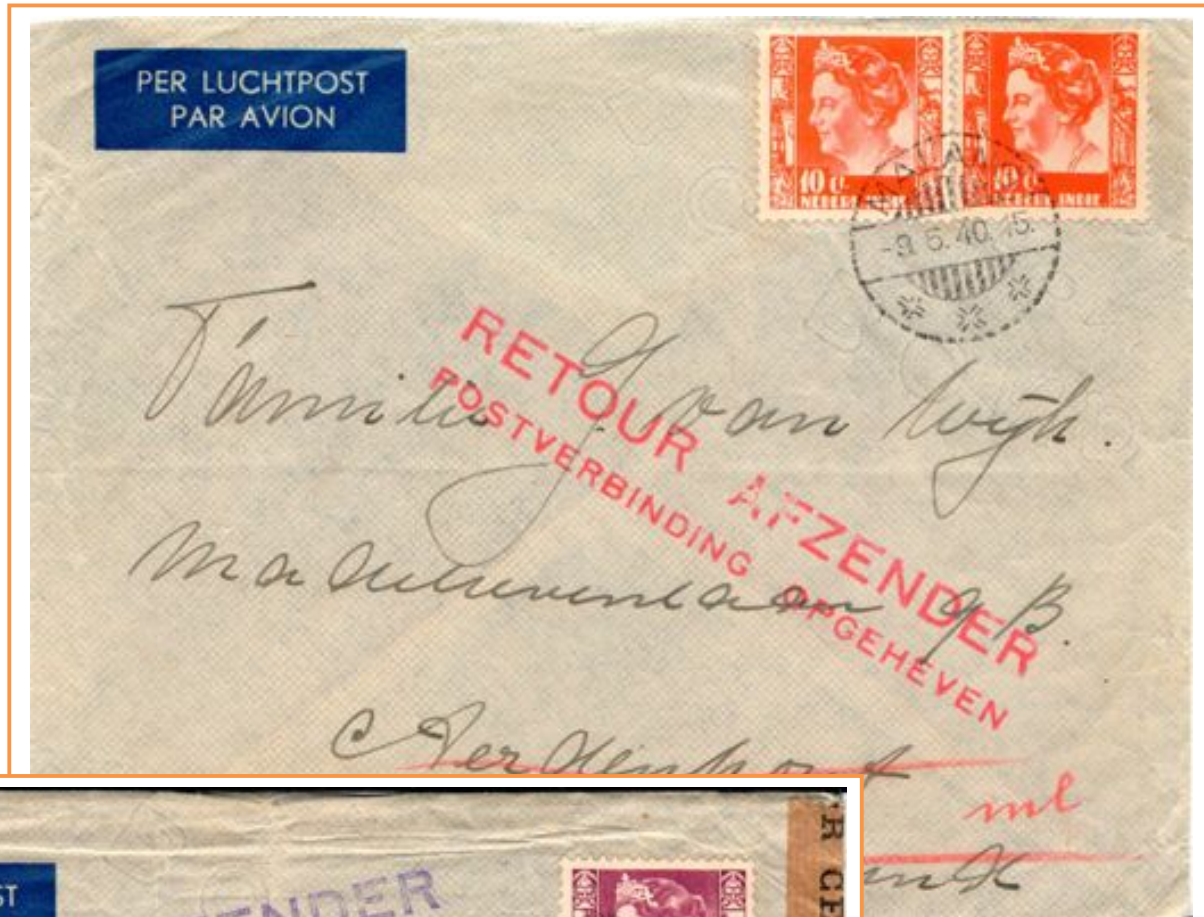 PER LUCHTPOST
PAR AVION
10 ct.
NEDERL. INDIE
10 ct.
NEDERL. INDIE
MALANG
40.15.
RETOUR AFZENDER
POSTVERBINDING OPGEHEVEN
Familie G. van Wijk.
9 B.
Aerdenhout
ENDER
ST
R CE